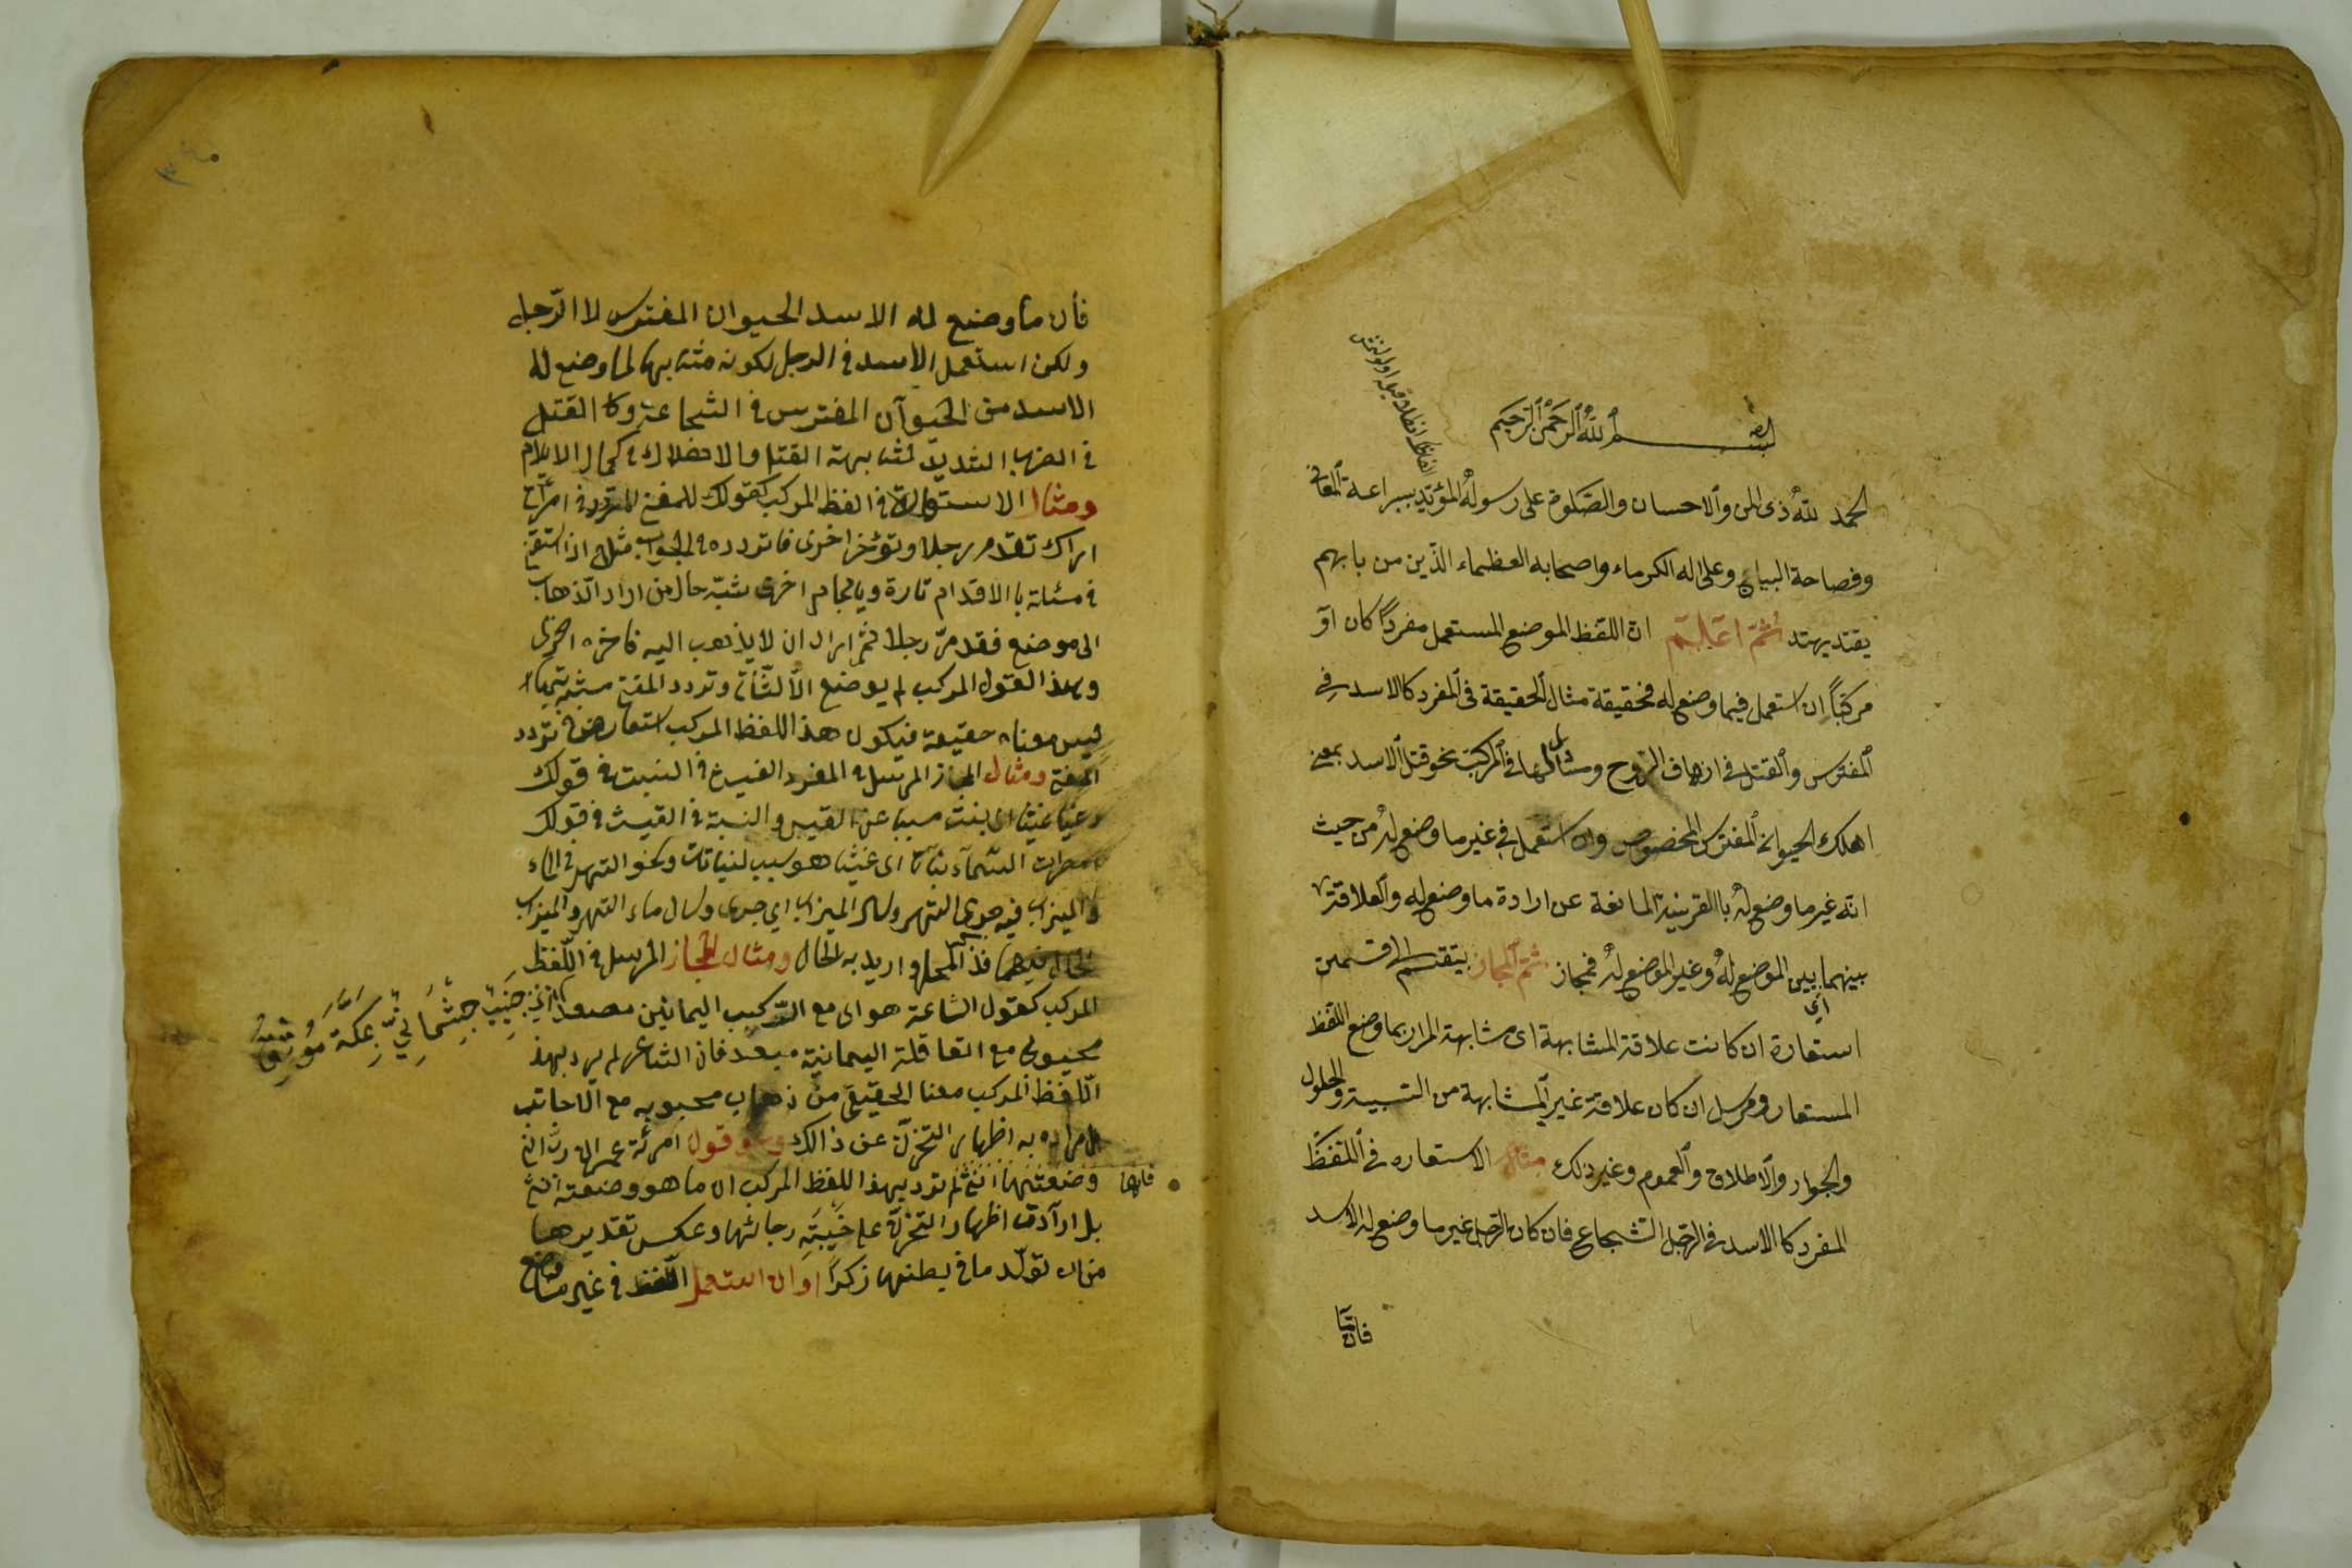 بسم الله الرحمن الرحيم
الحمد لله ذى المن والاحسان والصلوة على رسوله المؤيد ببراعة المعانى
وفصاحة البيان وعلى اله الكرماء واصحابه العظماء الذين من بابهم
يقتد يهتد ثم اعلم ان اللفظ الموضع المستعمل مفردا كان او
مركبا ان استعمل فيما وضع له فحقيقة مثال الحقيقة فى المفرد كالاسد في
المفترس والقتل فى ازهاق الروح ومثالها فى المركب نحو قتل الاسد بمعنى
اهلك الحيوان المفترس المخصوص وان استعمل في غير ما وضع له من حيث
انه غير ما وضع له باالقرينة المانعة عن ارادة ما وضع له والعلاقة
بينهما بين الموضع له وغير الموضع له فمجاز ثم المجاز يتقسم الى قسمين
استعارة ان كانت علاقة المشابهة اى مشابهة المراد بما وضع اللفظ
المستعار ومرسل ان كان علاقة غير المشابهة من السببية والحلول
والجوار والاطلاق والعموم وغير ذلك مثال الاستعاره فى اللفظ
المفرد كا الاسد فى الرجل الشجاع فان كان الرجل غير ما وضع له الاسد
فان ما
٣٤٠
فأن ما وضع له الاسد الحيوان المفترس لا الرجل
ولكن استعمل الاسد فى الرجل لكونه مشابها لما وضع له
الاسد من الحيوآن المفترس فى الشجاعة وكا القتل
فى الضرب الشديد لمشابهة القتل والاهلاك فى كمال الايلام
ومثال الاستعارة فى الفظ المركب كقولك للمفتى المتردد فى امر انى
اراك تقدم رجلا وتؤخر اخرى فا تردده فى الجواب مثلا اذا استفتى
فى مسئلة با الاقدام تارة وبالاحجام اخرى شبه حال من اراد الذهاب
الى موضع فقدم رجلا ثم اراد ان لا يذهب اليه فاخره اخرى
وهذا القول المركب لم يوضع الا للثانى وتردد المفتى
ليس معناه حقيقة فيكون هذا اللفظ المركب استعارة فى تردد
المفتى ومثال المجاز المرسل فى المفرد الغيث فى النبت فى قولك
رعينا غيثا اى نبت مسببا عن الغيث والنبت فى الغيث فى قولك
امطرت السمآء نباتا اى غيثا هو سبب لنباتات ونحو النهر فى الماء
والميزاب فيه جرى النهر وسال الميزاب اي جرى وسال ماء النهر والميزاب
الحال فيهما فذكر المحل واريد به الحال ومثال المجاز المرسل فى اللفظ
المركب كقول الشاعر هواى مع الركب اليمانين مصعد
جنيب وجثمانى بمكة موثق
محبوبى مع القافلة اليمانية مبعد فان الشاعر لم يرد بهذا
اللفظ المركب معنا الحقيقى من ذهاب محبوبه مع الاجانب
بل مراده به اظهار التحزن عن ذالك وقول امرئة عمران رب انى
وضعتها انثى لم ترد بهذا اللفظ المركب ان ما هو وضعته انثى
فانها
بل ارآدت اظهار التحزن على خيبة رجائها وعكس تقديرها
من ان تولد ما فى بطنها زكرا وان استعمل اللفظ فى غير ما وضع